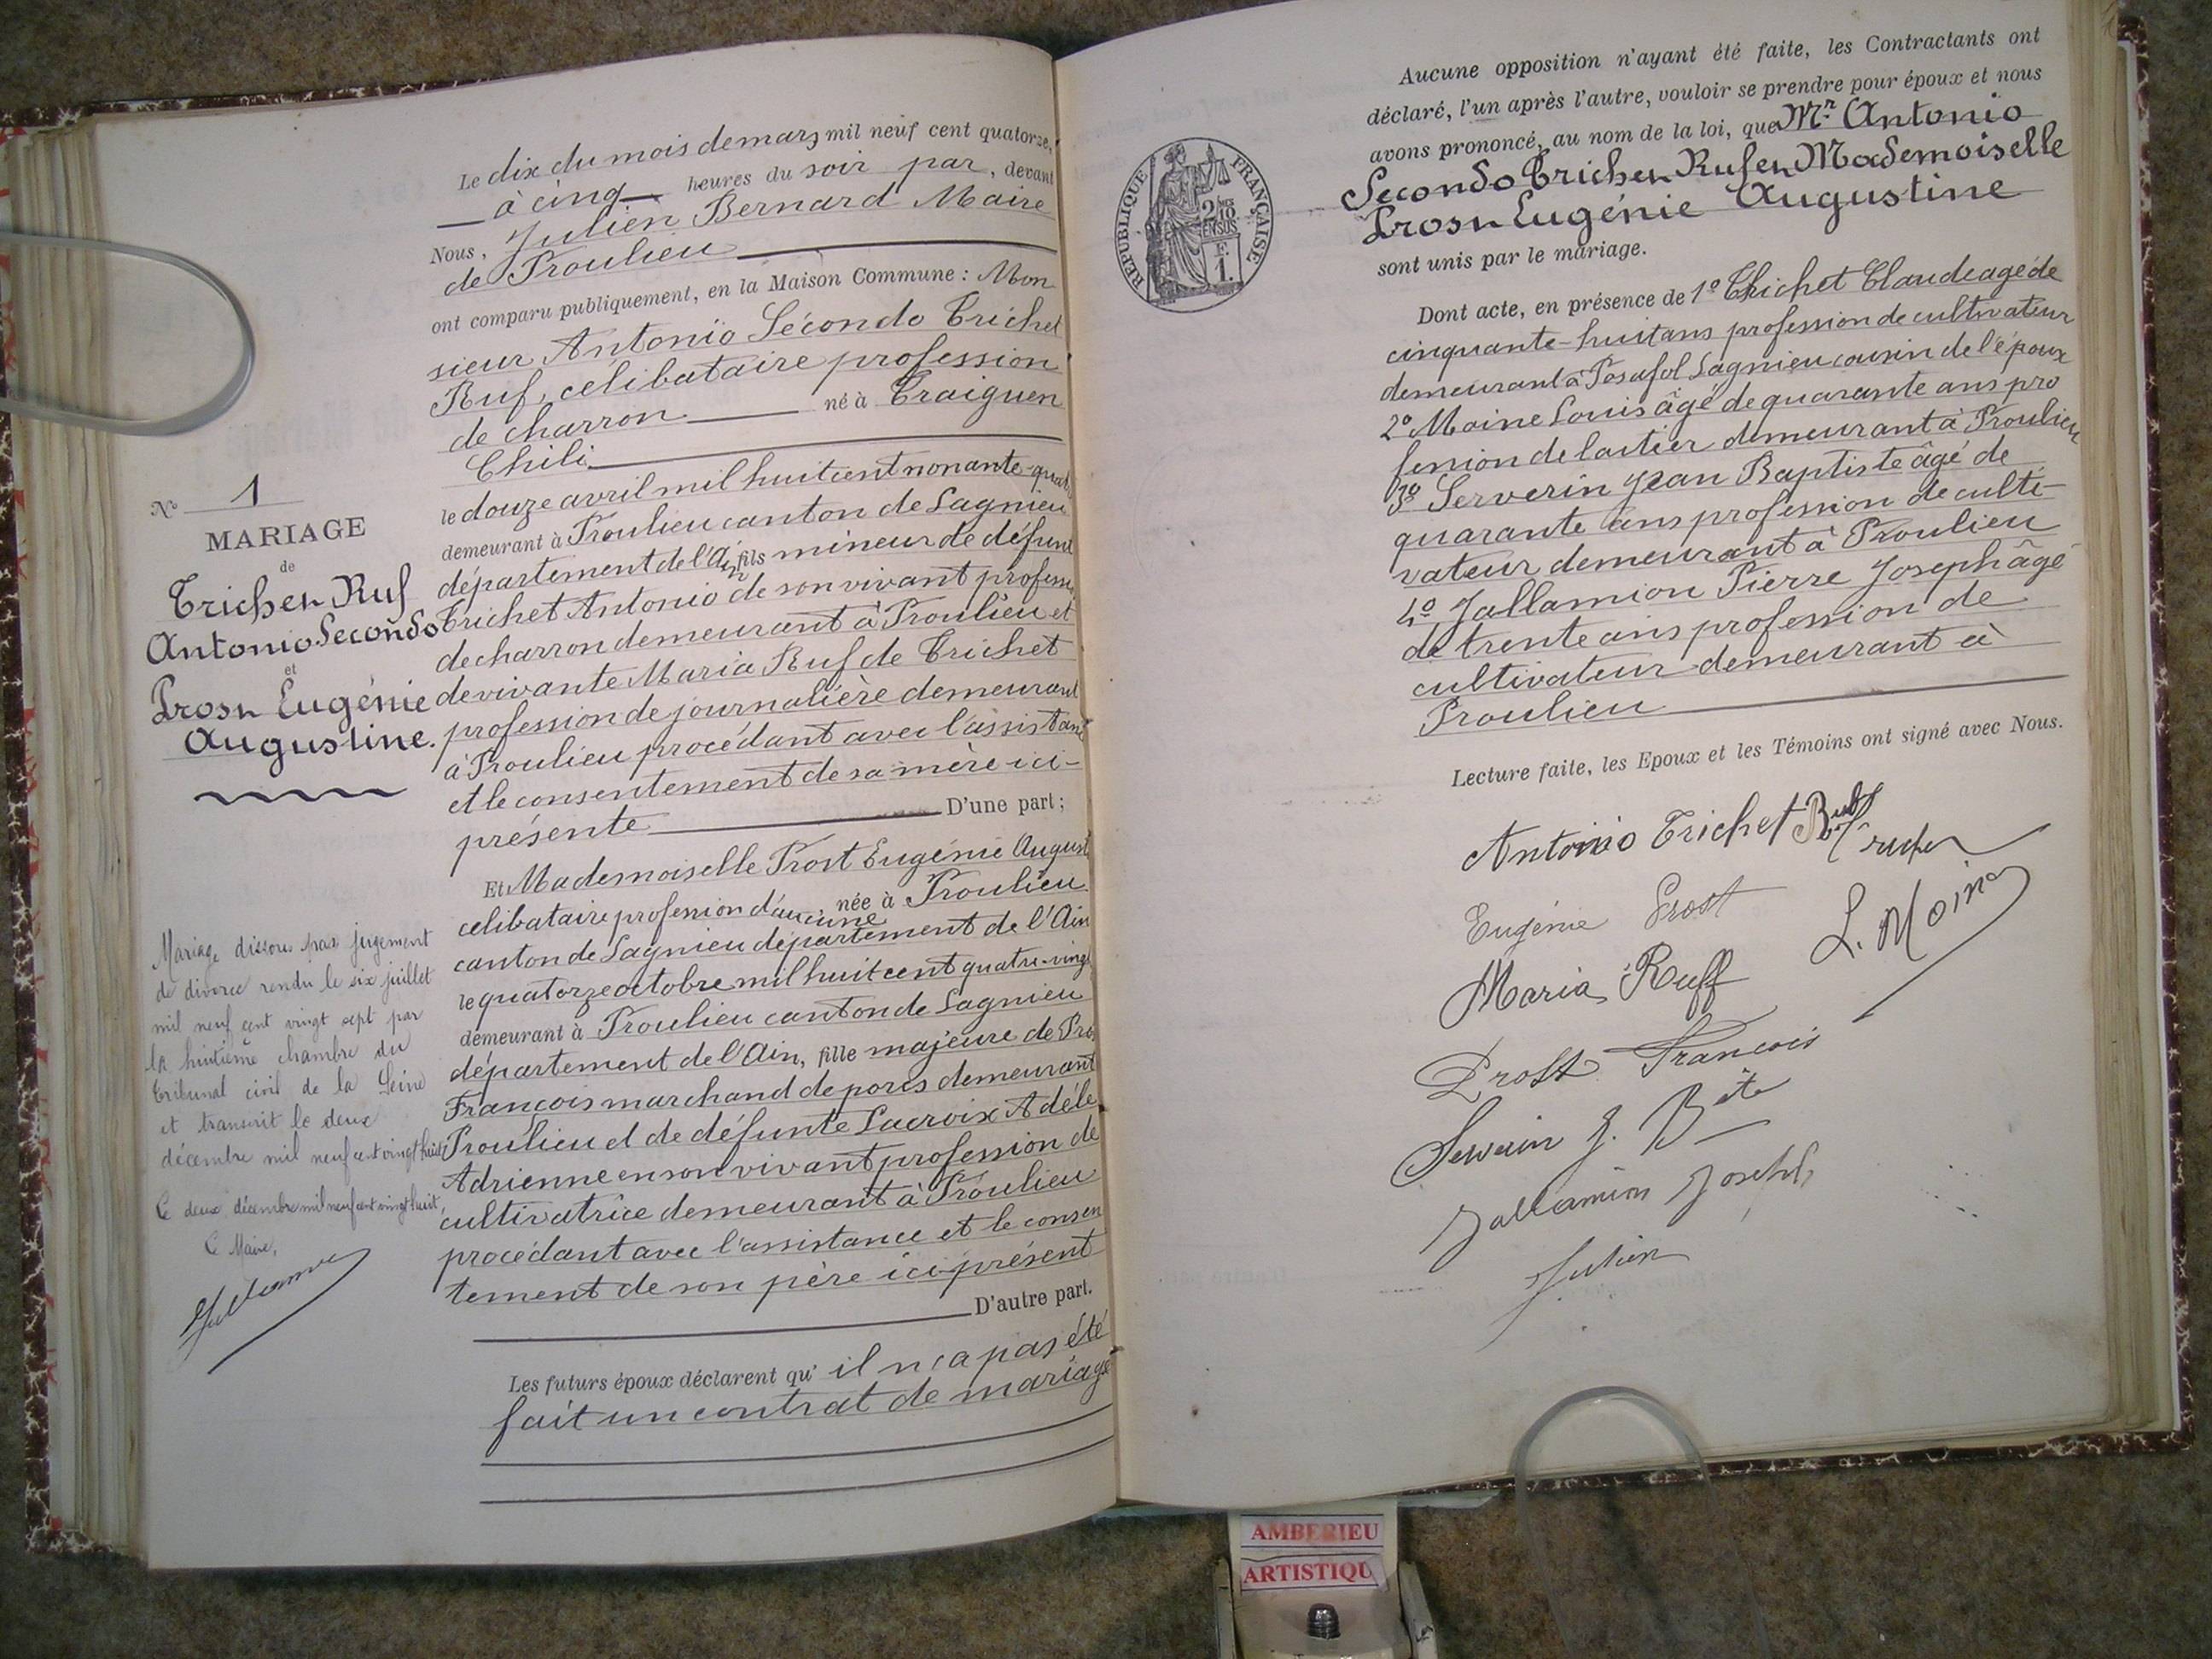 Le dix du mois de mars mil neuf cent quatorze,
à cinq heures du soir par, devant
Nous, Julien Bernard Maire
de Proulieu
ont comparu publiquement, en la Maison Commune : Mon
sieur Antonio Sécondo Trichet
Ruf, célibataire profession
de charron né à Traiguen
Chili
le douze avril mil huit cent nonante-quatre
demeurant à Proulieu canton de Lagnieu
département de l'Ain fils mineur de défunt
Trichet Antonio de son vivant profession
de charron demeurant à Proulieu et
de vivante Maria Ruf de Trichet
profession de journalière demeurant
à Proulieu procédant avec l'assistance
et le consentement de sa mère ici-
présente D'une part ;
Et Mademoiselle Prost Eugénie August
celibataire profession d'aucune, née à Proulieu
canton de Lagnieu département de l'Ain
le quatorze octobre mil huit cent quatre-vingt
demeurant à Proulieu canton de Lagnieu
département de l'Ain, fille majeure de Pros
François marchand de porcs demeurant
Proulieu et de défunte Lacroix Adéle
Adrienne en son vivant profession de
cultivatrice demeurant à Proulieu
procédant avec l'assistance et le consen
tement de son père ici-présent
D'autre part.
Les futurs époux déclarent qu' il n'a pas été
fait un contrat de mariage
No 1
MARIAGE
de
Trichet Ruf
Antonio Secondo
et
Prost Eugénie
Augustine.
Mariage dissous par jugement
de divorce rendu le six juillet
mil neuf cent vingt sept par
la huitième chambre du
tribunal civil de la Seine
et transcrit le deux
décembre mil neuf cent vingt huit
Ce deux décembre mil neuf cent vingt huit,
Le Maire,
Aucune opposition n'ayant été faite, les Contractants ont
déclaré, l'un après l'autre, vouloir se prendre pour époux et nous
avons prononcé, au nom de la loi, que Mr Antonio
Secondo Trichet Ruf et Mademoiselle
Prost Eugénie Augustine
sont unis par le mariage.
Dont acte, en présence de 1º Trichet Claude agé de
cinquante-huit ans profession de cultivateur
demeurant à Posafol Lagnieu cousin de l'époux
2º Moine Louis âgé de quarante ans pro
fession de laitier demeurant à Proulieu
3º Serverin Jean Baptiste âgé de
quarante ans profession de culti-
vateur demeurant à Proulieu
4º Jallamion Pierre Joseph âgé
de trente ans profession de
cultivateur demeurant à
Proulieu
Lecture faite, les Epoux et les Témoins ont signé avec Nous.
Antonio Trichet Ruf
Eugénie Prost
L. Moine
Maria Ruff
Prost François
Serverin J. Bte
Jallamion Joseph
Julien
RÉPUBLIQUE FRANÇAISE
2/10 EN SUS
1 F.
AMBERIEU
ARTISTIQU